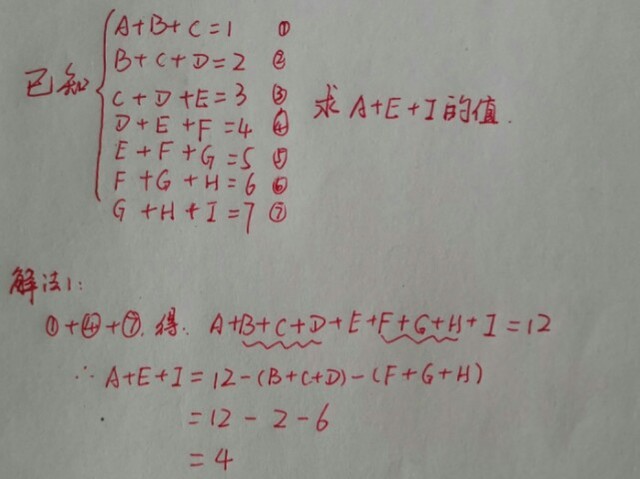 A+B+C=1 ①
B+C+D=2 ②
已知 C+D+E=3 ③ 求 A+E+I的值.
D+E+F=4 ④
E+F+G=5 ⑤
F+G+H=6 ⑥
G+H+I=7 ⑦
解法1:
①+④+⑦,得: A+B+C+D+E+F+G+H+I=12
∴ A+E+I=12-(B+C+D)-(F+G+H)
=12-2-6
=4